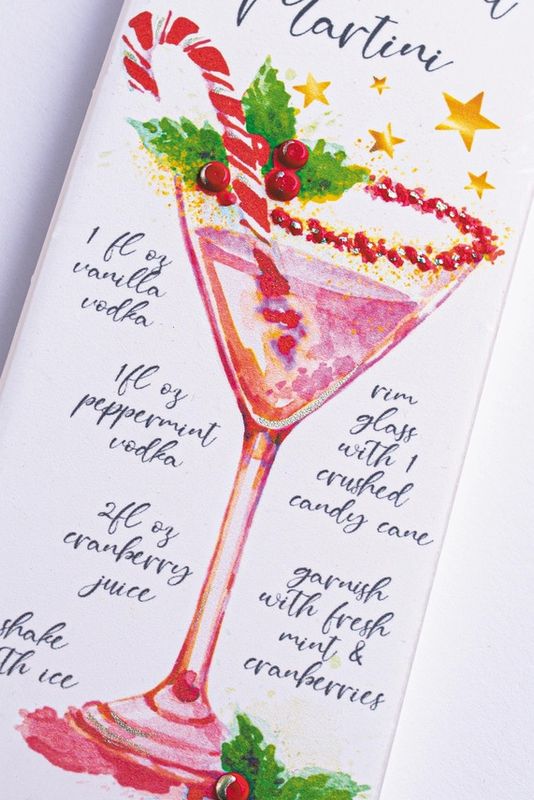 Martini
1 fl oz
vanilla
vodka
1fl oz
peppermint
vodka
2fl oz
cranberry
juice
shake
ice
rim
glass
with 1
crushed
candy cane
garnish
with fresh
mint &
cranberries